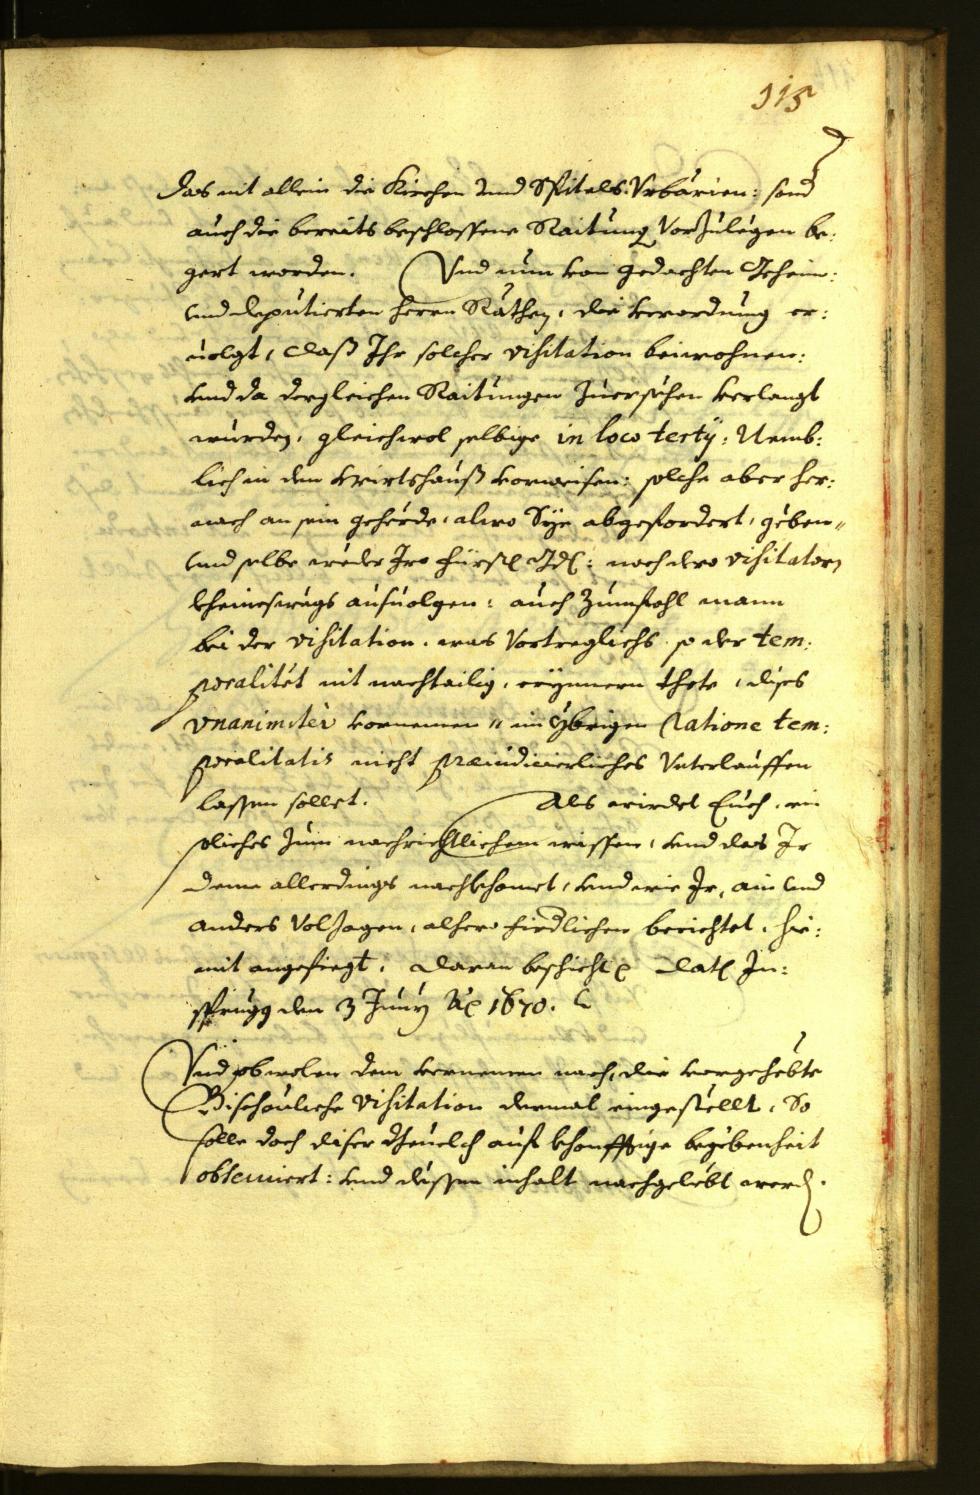 115
das nit allein die Kirchen und Spitals: Urbärien: sond
auch die bereits beschlossene Raitung Vorzulegen be:
gert worden. Und nun von gedachten Geheim:
und deputierten herrn Räthen, die verordnung er:
uolgt, dass Ihr solcher visitation beiwohnen:
und da dergleichen Raitungen zuersechen verlangt
wurden, gleichwol selbige in loco tertÿ, Nemb:
lich in dem Wirtshauß vorweisen: solche aber her:
nach an sein gehörde, alwo Sÿe abgefordert, geben,,
und selbe weder Iro Fürstl Gd: noch dero visitatorn
kheineswegs ausuolgen: auch zumfahl mann
bei der visitation, was Vortreglichs so der tem:
poralitet nit nachteilig, erÿnnern thete, dises
unanimiter vornemen,, im ÿbrigen Ratione tem:
poralitatis nicht præiudicierliches Unterlauffen
lassen sollet. Als wirdet Euch, ein
solches zum nachrichtlichem wissen, und das Ir
deme allerdings nachkhomet, und wie Ir, ain und
anders Volzogen, alhero fürdlichen berichtet, hie:
mit angefiegt, daran beschicht Dat In:
sprugg den 3 Junÿ Ao 1670.
Und obwolen dem vernemen nach, die vorgehebte
Bischouliche Visitation dermal eingestellt, So
solle doch diser beuelch auf khonfftige begebenheit
obseruiert: und dessen inhalt nachgelebt werd.